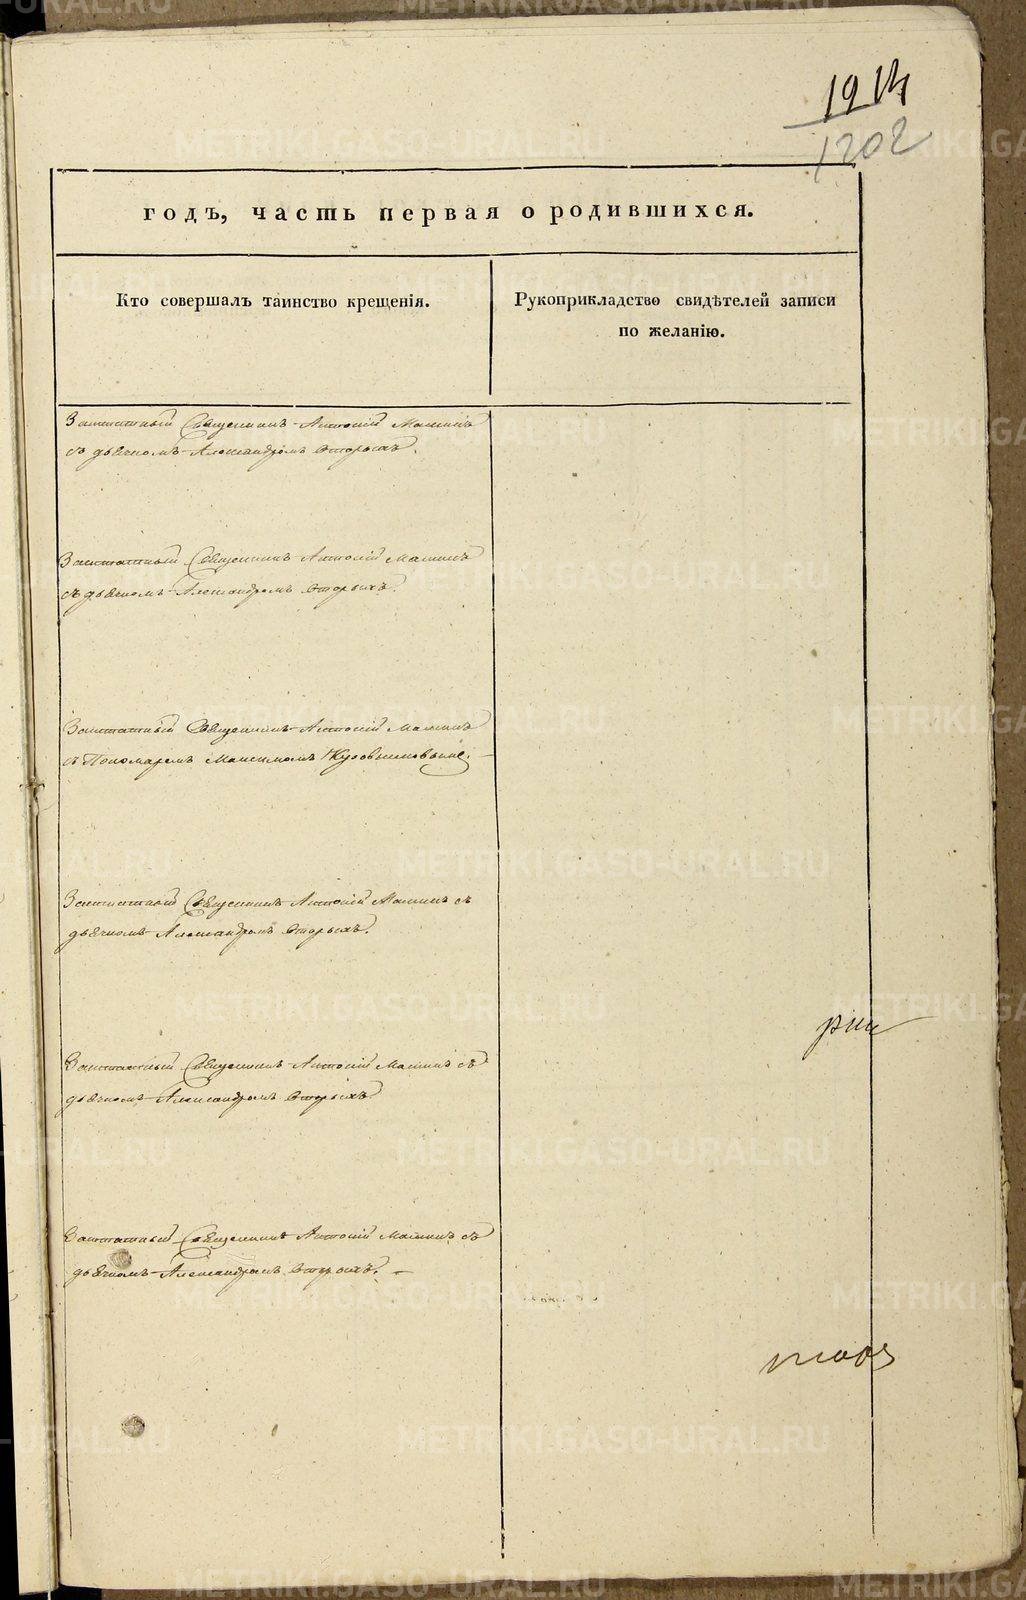 1202
годъ, часть первая о родившихся.
Кто совершалъ таинство крещенія.
Рукоприкладство свидѣтелей записи
по желанію.
Заштатный Священникъ Антоній Маминъ
съ дьячкомъ Александромъ
Заштатный Священникъ Антоній Маминъ
съ дьячкомъ Александромъ
Заштатный Священникъ Антоній Маминъ
съ Пономаремъ Максимомъ
Заштатный Священникъ Антоній Маминъ съ
дьячкомъ Александромъ
Заштатный Священникъ Антоній Маминъ съ
дьячкомъ Александромъ
Заштатный Священникъ Антоній Маминъ съ
дьячкомъ Александромъ
METRIKI.GASO-URAL.RU